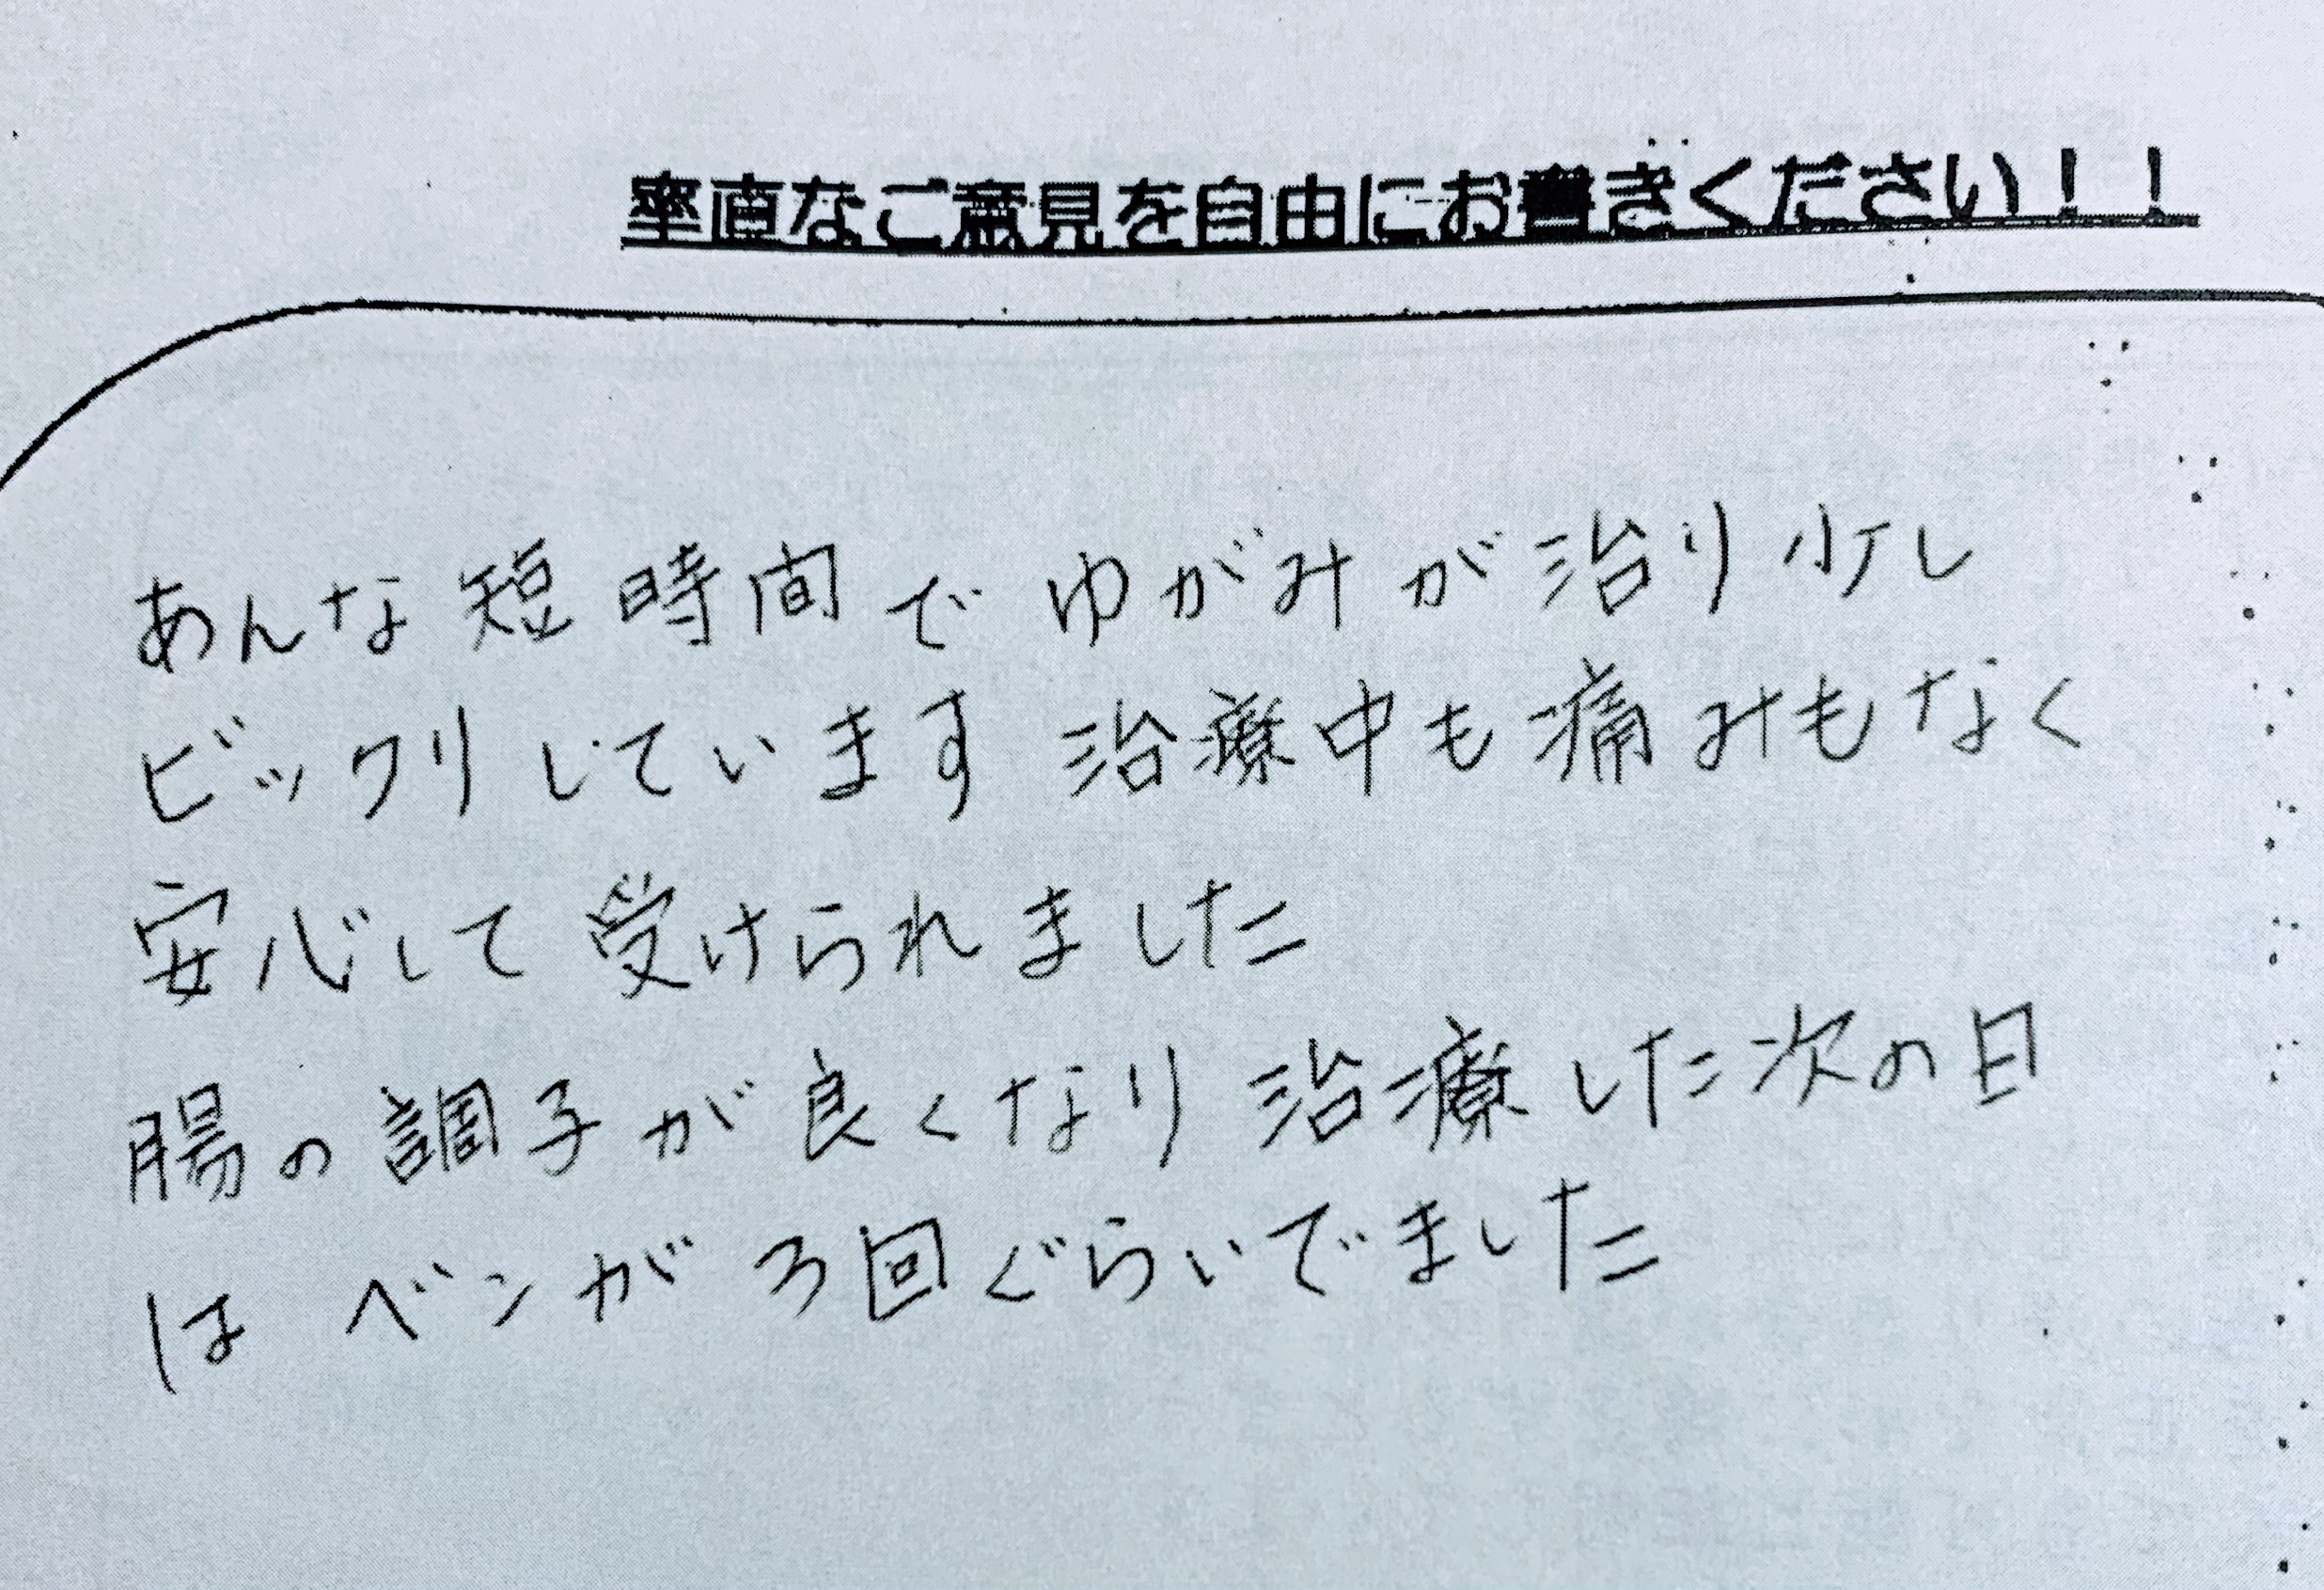 率直なご意見を自由にお書きください！！
あんな短時間でゆがみが治り少し
ビックリしています 治療中も痛みもなく
安心して受けられました
腸の調子が良くなり治療した次の日
は ベンが3回ぐらいでました